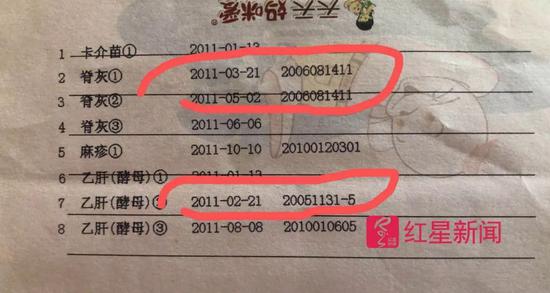 天天妈咪爱
1 卡介苗① 2011-01-13
2 脊灰① 2011-03-21 2006081411
3 脊灰② 2011-05-02 2006081411
4 脊灰③ 2011-06-06
5 麻疹① 2011-10-10 20100120301
6 乙肝(酵母)① 2011-01-13
7 乙肝(酵母)② 2011-02-21 20051131-5
8 乙肝(酵母)③ 2011-08-08 2010010605
红星新闻